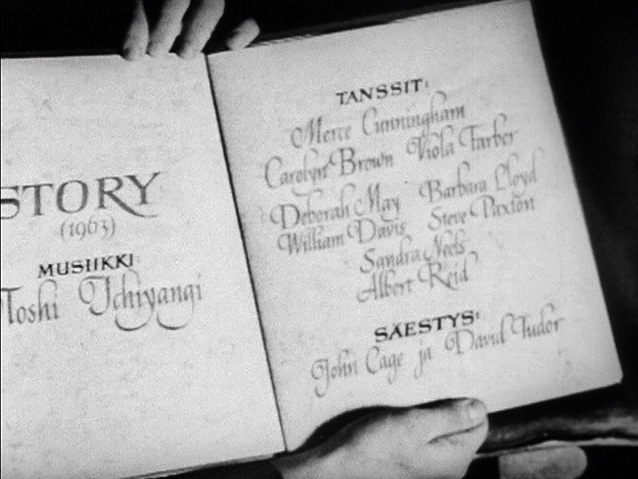 STORY
(1963)
MUSIIKKI:
Toshi Ichiyangi
TANSSIT:
Merce Cunningham
Carolyn Brown Viola Farber
Deborah May Barbara Lloyd
William Davis Steve Paxton
Sandra Neels
Albert Reid
SÄESTYS:
John Cage ja David Tudor